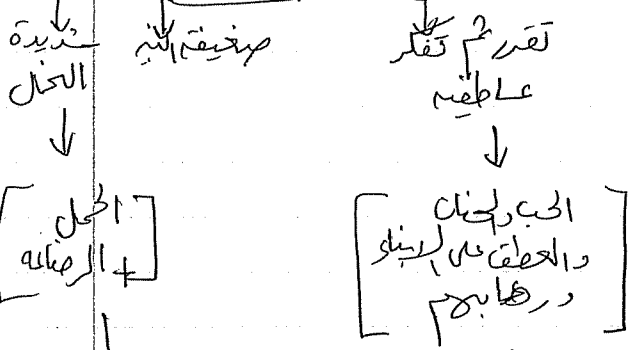 تقدر ثم تفكر
عاطفيه
الحب والحنان
والعطف على الابناء
ضعيفة البنيه
شديدة
التحمل
الحمل
+ الرضاعه